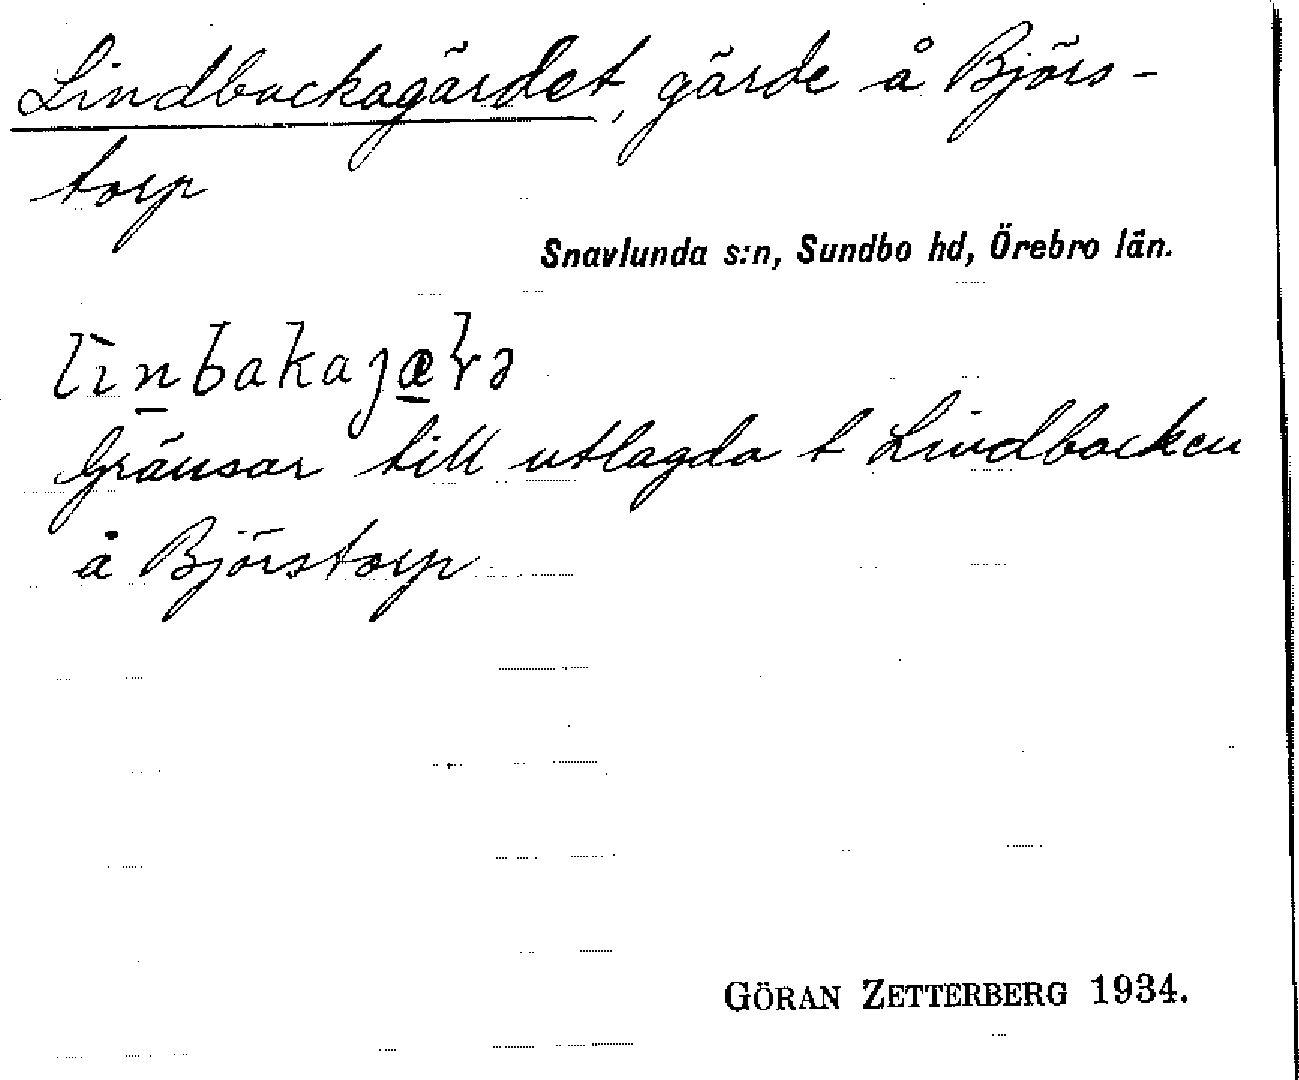 Lindbackagärdet, gärde å Björs-
torp
Snavlunda s:n, Sundbo hd, Örebro län.
Gränsar till utlagda t Lindbacken
å Björstorp
GÖRAN ZETTERBERG 1934.